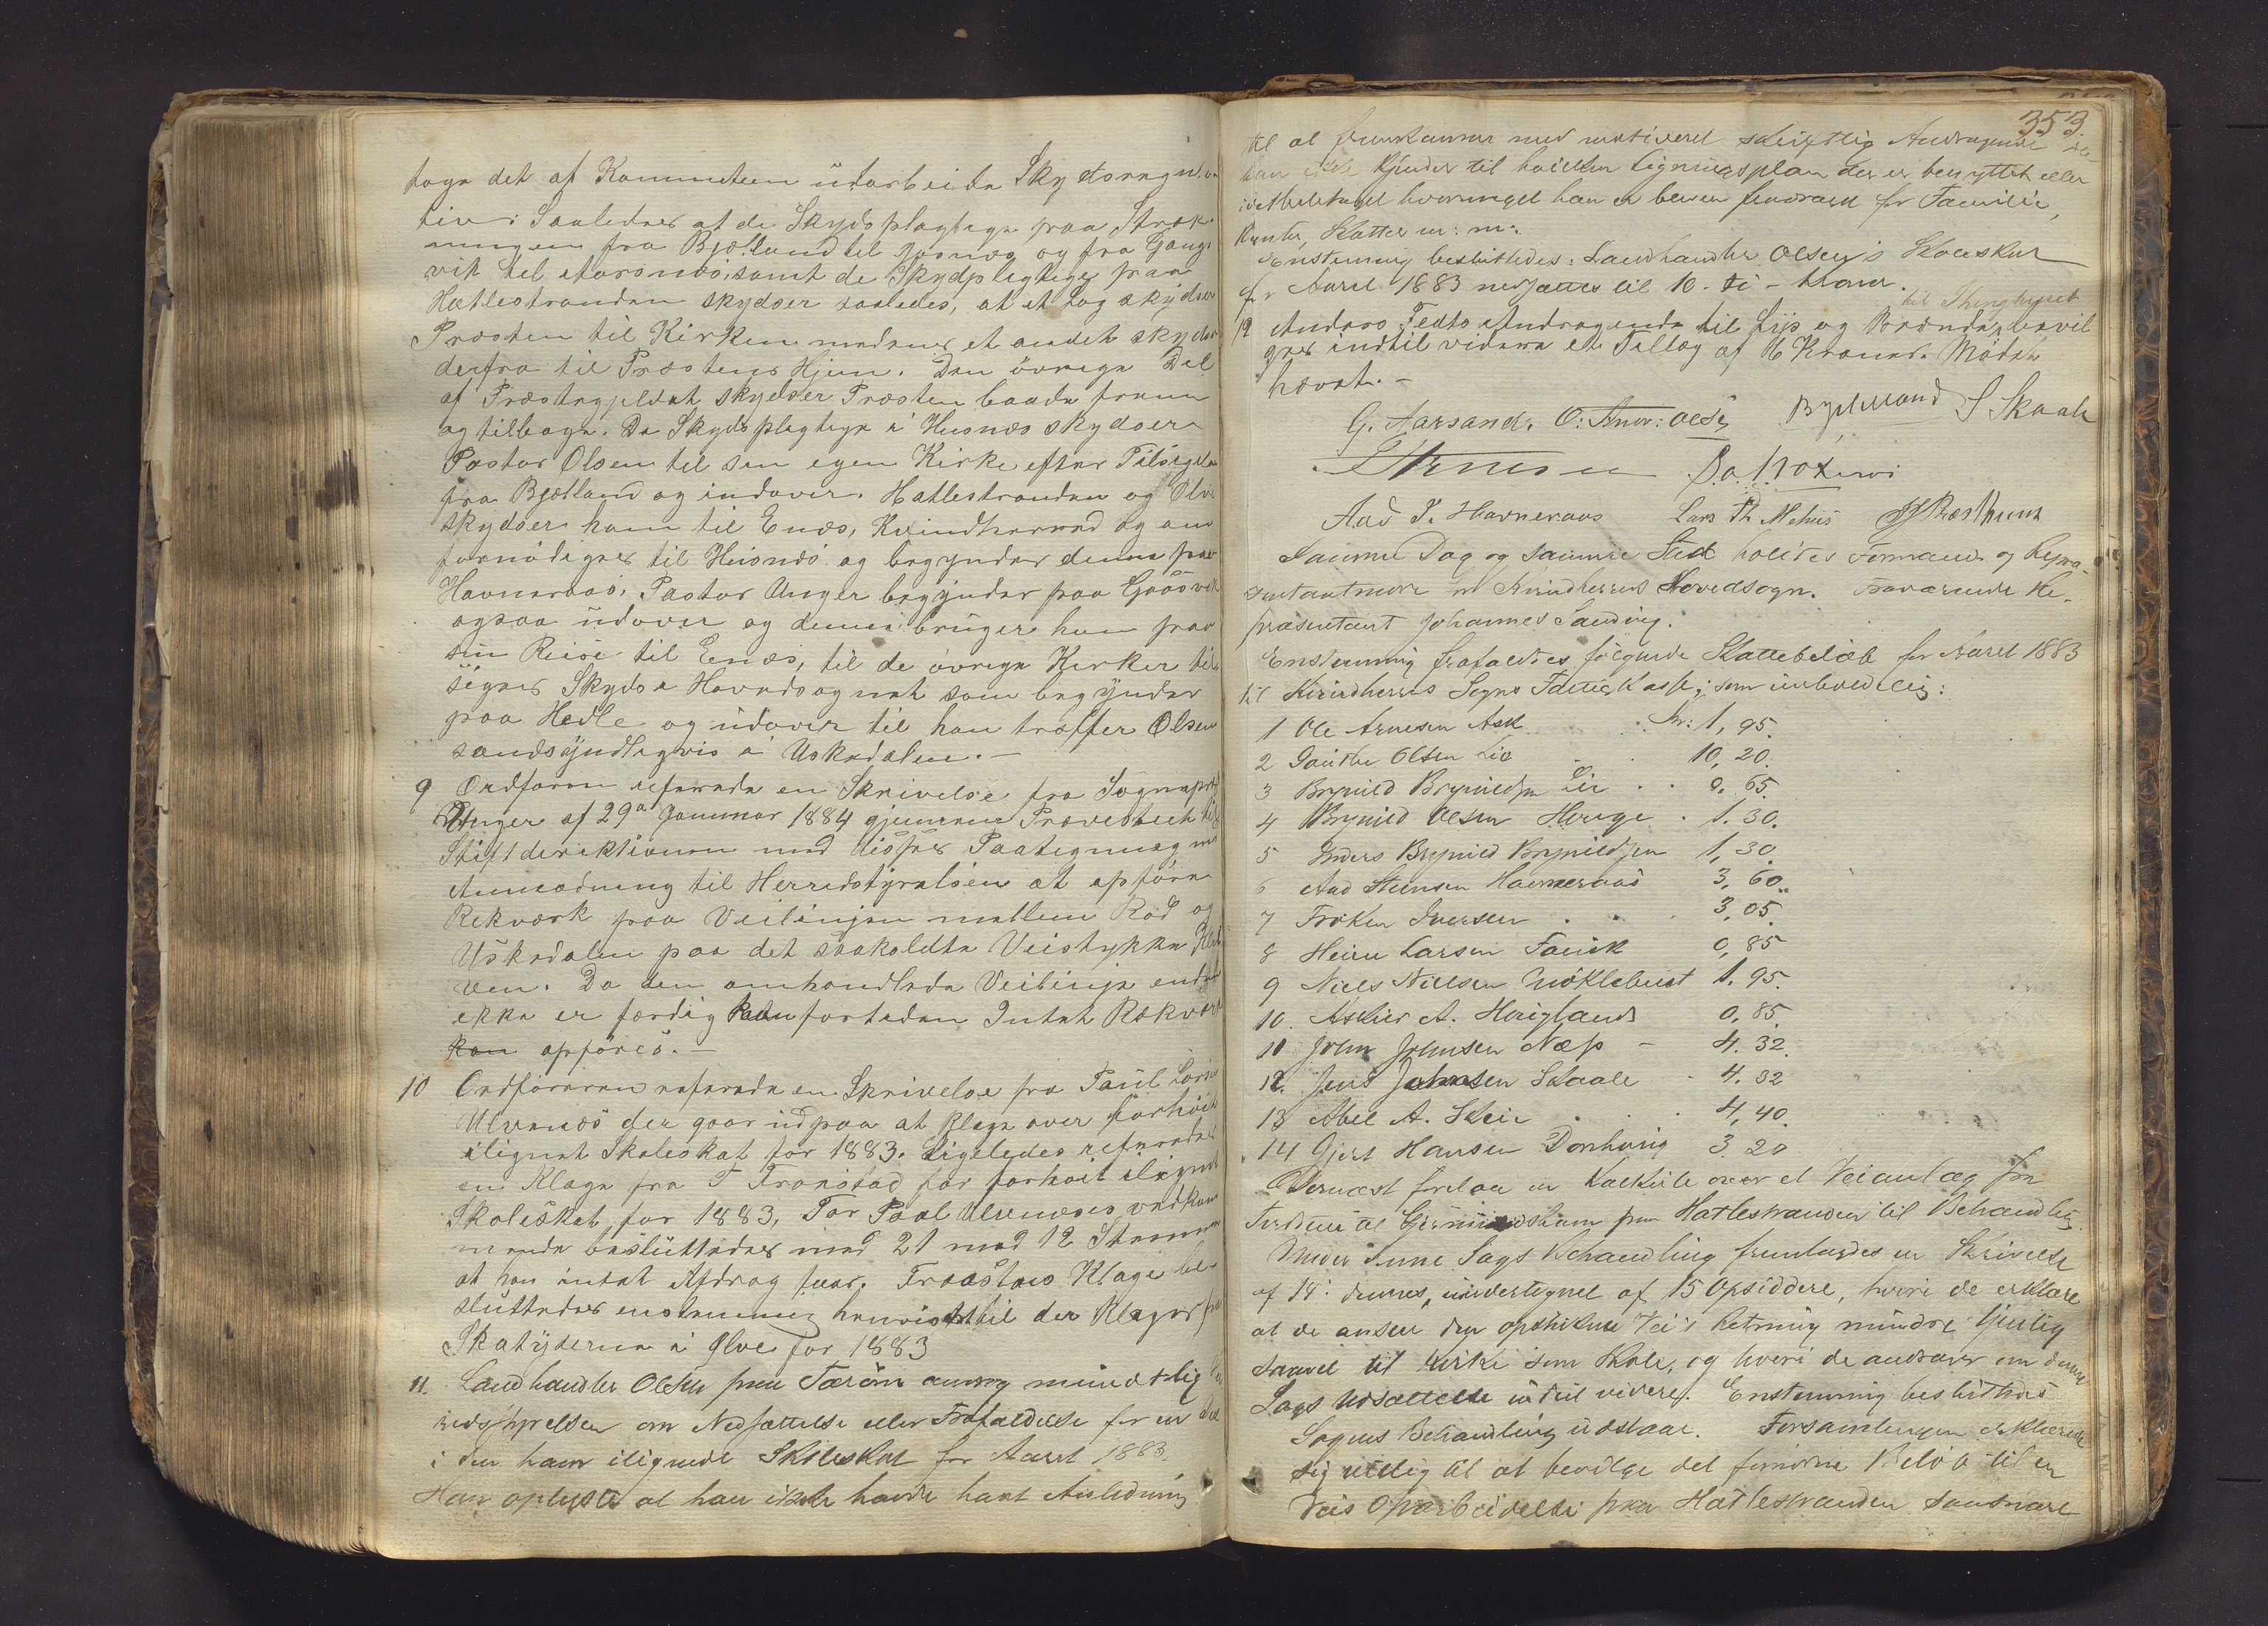 tage det af Kommiteen üdarbeide Skydsregula
tiv: Saaledes at de Skydsplagtige paa Stræk-
ningen fra Bjælland til Gjosnæs og fra Gangs
vik til Aarsnæs, samt de Skydspligtige paa
Hatlestranden skydser saaledes, at et Lag skydser
Præsten til Kirken medens et andet skydser
derfra til Præstens Hjem. Den øvrige Del
af Præstegjeldet skydser Præsten baade frem
og tilbage. De Skydsplagtige i Husnæs skydser
Pastor Olsen til sin egen Kirke efter Tilsigelse
fra Bjælland og indover. Hatlestranden og Ølve
skydser ham til Enæs, Kvindherred og om
fornødiges til Husnæs og begynder denne paa
Havneraas. Pastor Unger begynder paa Gjøsvik
ogsaa üdover og denne bruger han paa
sin Reise til Enæs, til de øvrige Kirker til
siges Skyds i Hovedsognet som begynder
paa Hedle og üdover til han træffer Olsen
sandsynligvis i Uskedalen. —
9 Ordføren refererede en Skrivelse fra Sognepræst
Unger af 29de Januar 1884 gjennem Provstiet til
Stiftdirektionen med disses Paategning med
Anmodning til Herredstyrelsen at opføre
Rekværk paa Veilinjen mellem Rød og
Uskedalen paa det saakaldte Veistykke
ven. Da den omhandlede Veilinje endnu
ikke er færdig kan fortiden Intet Rekværk
kan opføres. —
10 Ordføreren refererede en Skrivelse fra Paul Larsen
Ulvenæs der gaar üd paa at klage over forhøit
ilignet Skoleskat for 1883. Ligeledes refereredes
en Klage fra T Fronstad for forhøit ilignet
Skoleskat for 1883. For Paul Ulvenæs vedkom
mende besluttedes med 21 mod 12 Stemmer
at han intet Afdrag faar. Klage be-
sluttedes enstemmig henvist til der Klages
Skatyderne i Ølve for 1883
11. Landhandler Olsen paa Tærøen ansøg mündtlig
om Nedsættelse eller Frafaldelse for en Del
i den ham ilignede Skoleskat for Aaret 1883.
Han oplyste at han ikke havde havt Anledning
353
til at fremkomme med motiveret skriftlig Andragende
han ikke kjender til hvilken Ligningsplan der er benyttet eller
hvormeget han er bleven for Familie,
Rente, Katter m: m:
Enstemmig beslüttedes: Landhandler Olsen's Skoleskat
for Aaret 1883 nedsættes til 10 - ti - Kroner.
til Thinghuset
12 Anders Tedts Andragende til Lys og Brænde, bevil
ges indtil videre et Tillæg af 16 Kroner. Mødet
hævet. —
G. Aarsand. O: Knv: Olsen S Skaale
Aad T. Havneraas Lars Th Mehus
Samme Dag og samme Sted holdtes Formands og Repræ-
sentantmøde for Kvindherreds Hovedsogn. Fraværende Re-
præsentant Johannes Sandvig.
Enstemmig frafaldtes følgende Skattebeløb for Aaret 1883
til Kvindherreds Sogns Fattigkasse, som uerholdelig:
1 Ole Arnesen Ask Kr: 1,95.
2 Gauthe Olsen Lie 10,20.
3 Brynild Brynildsen Lie 0.65.
4 Brynild Olsen Houge 1.30.
5 Anders Brynild Brynildsen 1,30
6 Aad Steinsen Havneraas 3,60.
7 Frøken Iversen 3,05.
8 Heine Larsen Fatvik 0,85
9 Niels Nielsen Møklebust 1.95.
10. Askier A. Haugland 0,85.
11 John Johnsen Næss - 4.32.
12. Jens Johnsen Skaale 4.32
13 Abel A. Skeie 4,40.
14 Gjert Hansen Dønhaug 3.20
Dernæst forelaa en Kalkule over et Veianlæg fra
til Gjermundshavn paa Hatlestranden til Behandling.
Under denne Sags Behandling fremlagdes en Skrivelse
af 14: dennes, undertegnet af 15 Opsiddere, hvori de erklære
at de ansen den opstukne Vei's Retning mindre tjenlig
saavel til Kirke som Skole, og hvori de andrager om denne
Sags Udsættelse indtil videre. Enstemmig beslüttedes
Sagens Behandling üdstaar. Forsamlingen erklærede
sig villig til at bevilge det fornødne Beløb til en
Veis Oparbeidelse paa Hatlestranden saasnart